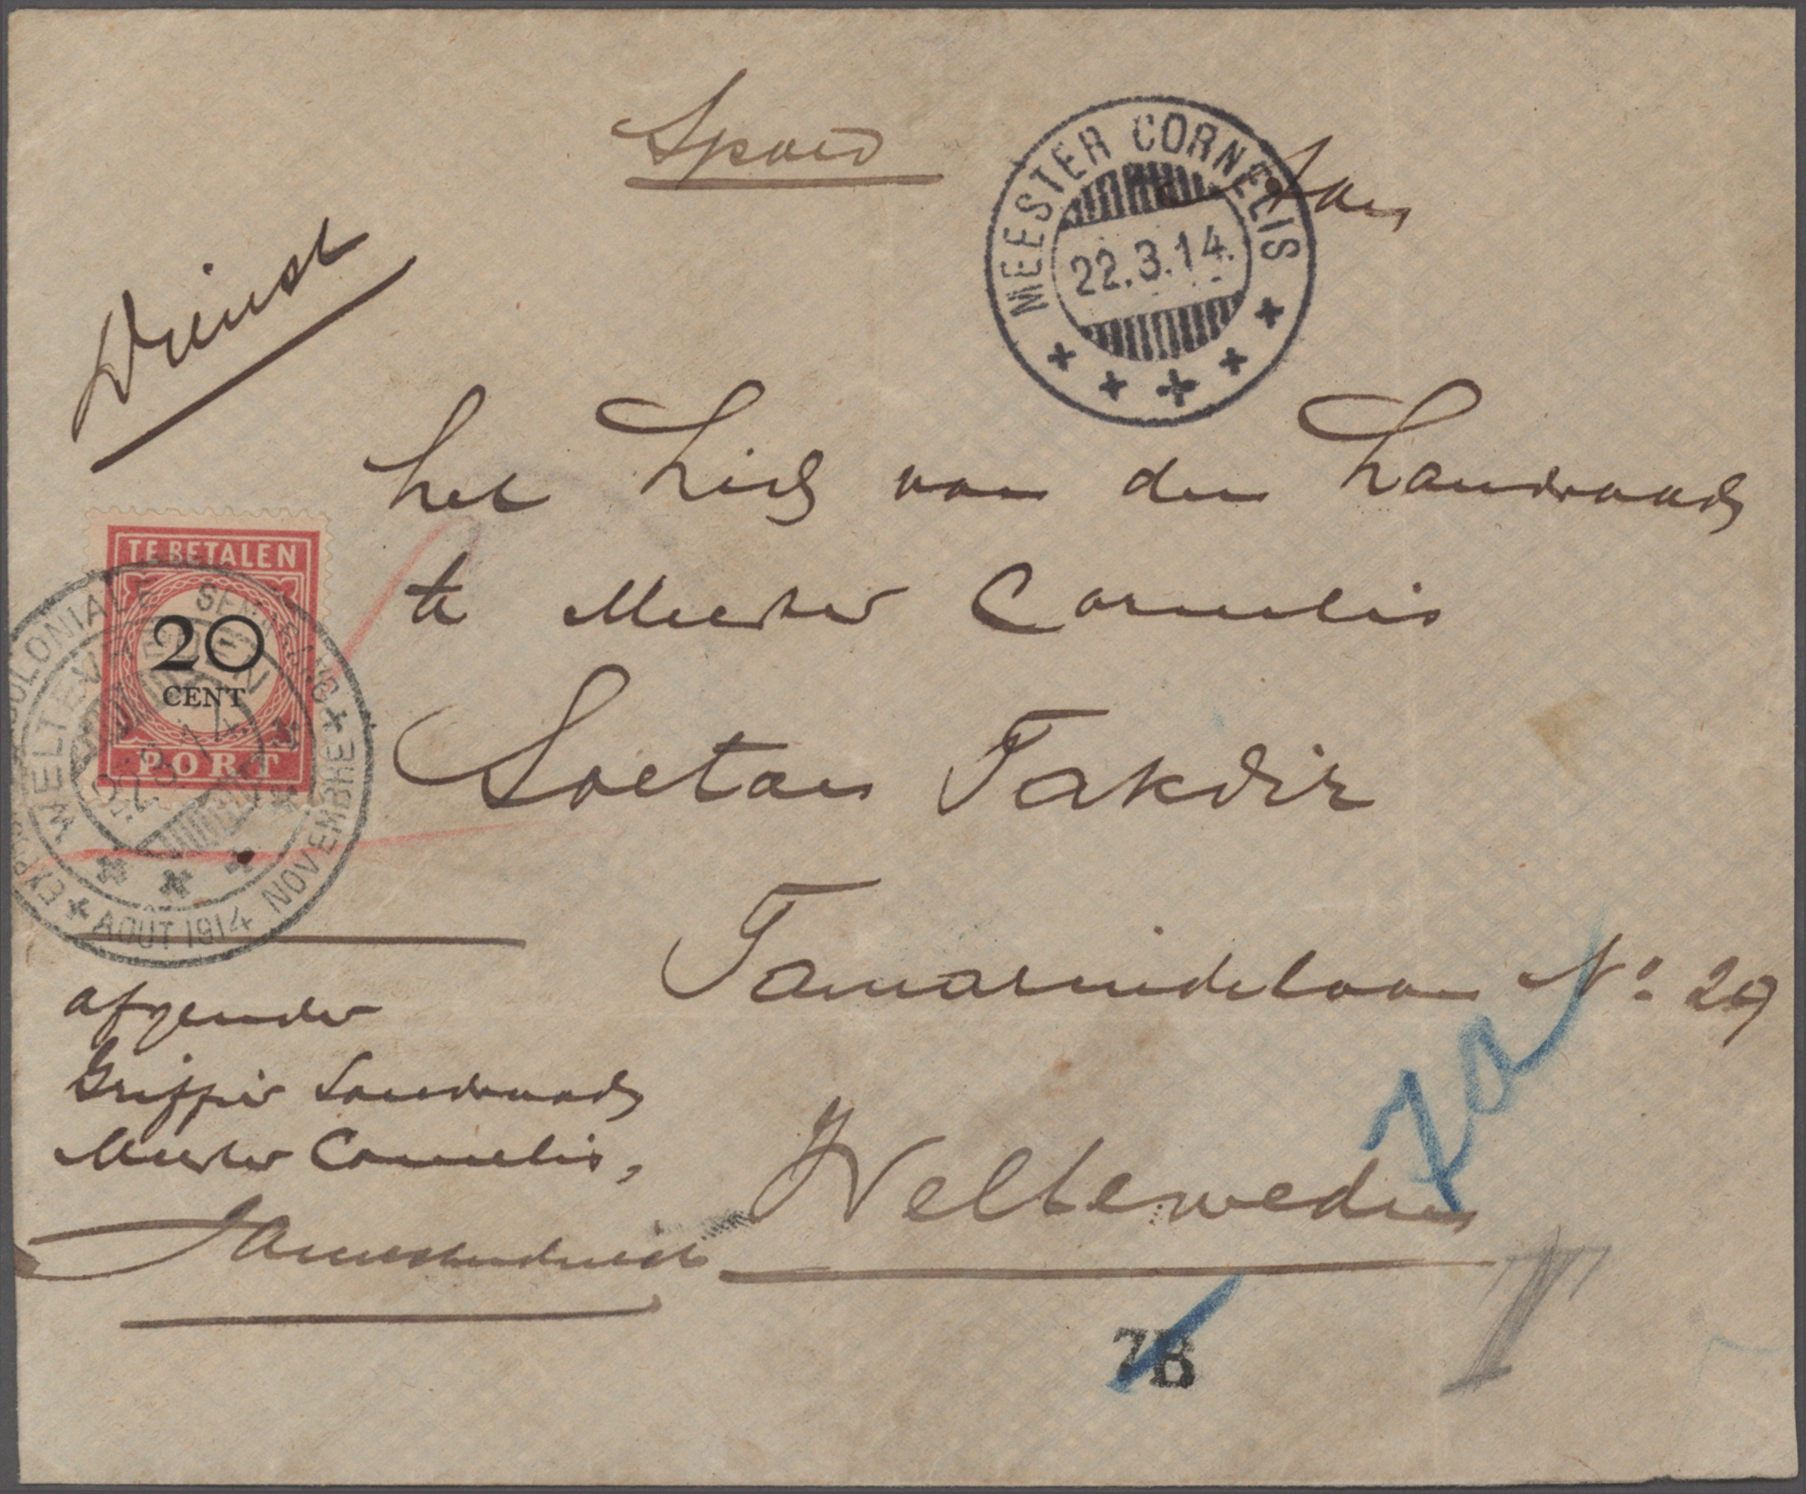 Spoed
Aan
Dienst
MEESTER CORNELIS
22.3.14.
het Lid van den Landraad
te Meester Cornelis
Soetan Takdir
Tamarindelaan No 29
Weltevreden
TE BETALEN
20
CENT
PORT
EXPOSITION COLONIALE SEMARANG
AOUT 1914 NOVEMBRE
WELTEVREDEN
afzender
Griffier Landraad
Meester Cornelis,
7B
T